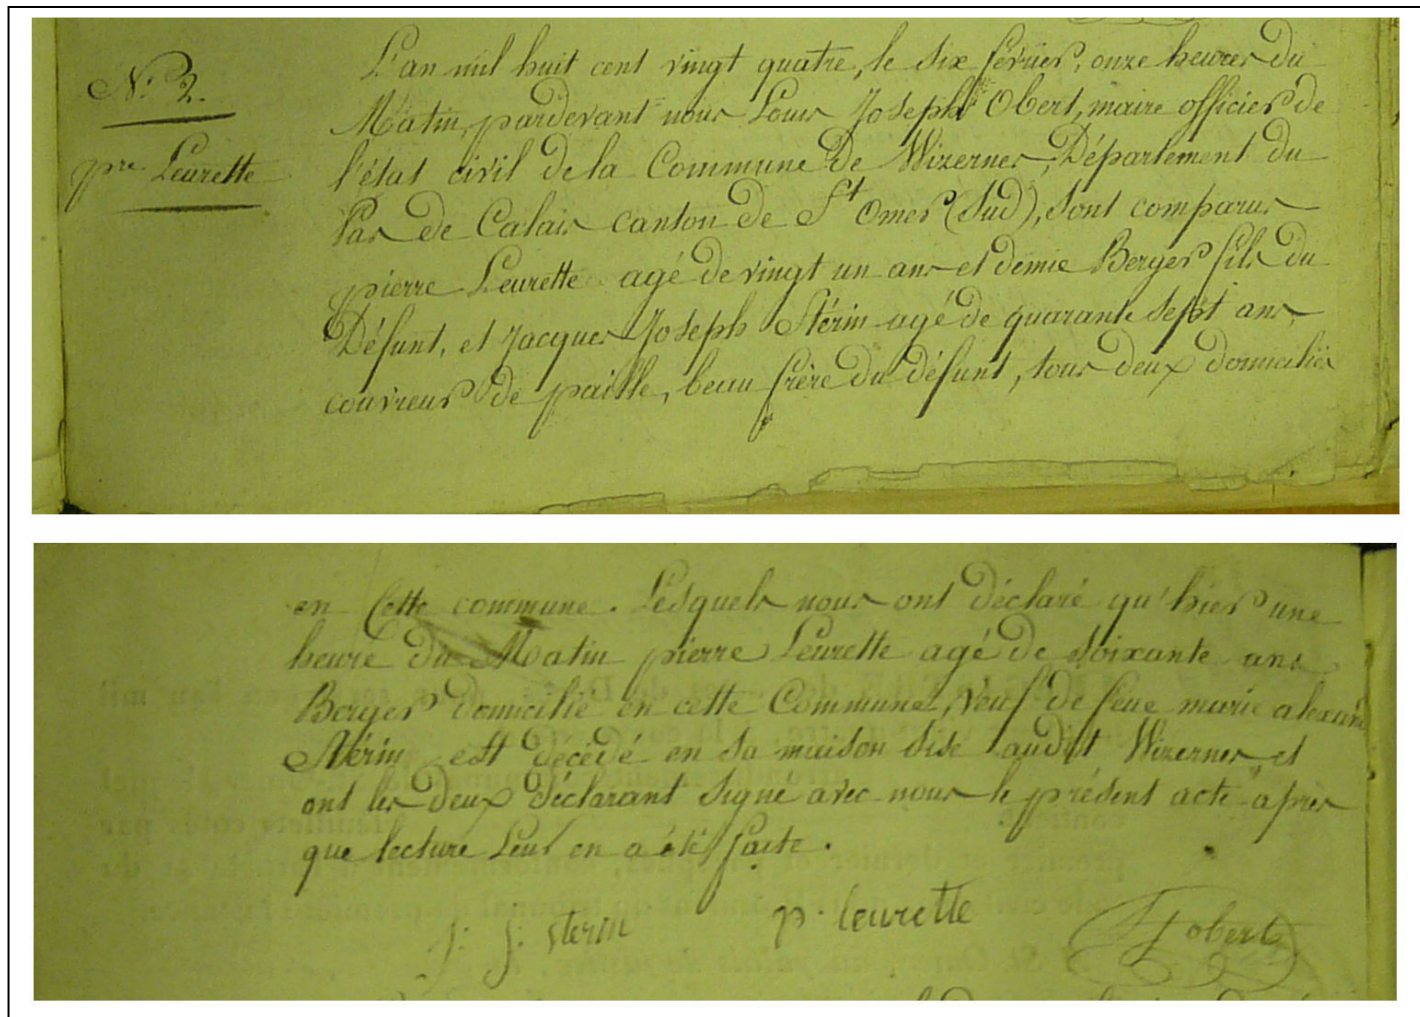 N.° 2.
pre Leurette
L'an mil huit cent vingt quatre, le six février, onze heures du
Matin, pardevant nous Louis Joseph Obert, maire officier de
l'état civil de la Commune de Wizernes, Département du
Pas de Calais canton de St Omer (Sud), sont comparus
pierre Leurette agé de vingt un ans et demie Berger fils du
Défunt, et Jacques Joseph Stérin agé de quarante sept ans,
couvreur de paille, beau frère du défunt, tous deux domicilié
en Cette commune. Lesquels nous ont déclaré qu'hier une
heure du Matin pierre Leurette agé de soixante ans
Berger domicilié en cette Commune, veuf de feue marie alexan
Stérin est décédé en sa maison sise audit Wizernes et
ont les deux déclarant signé avec nous le présent acte après
que lecture leur en a été faite.
j: j: sterin p. leurette Lj obert